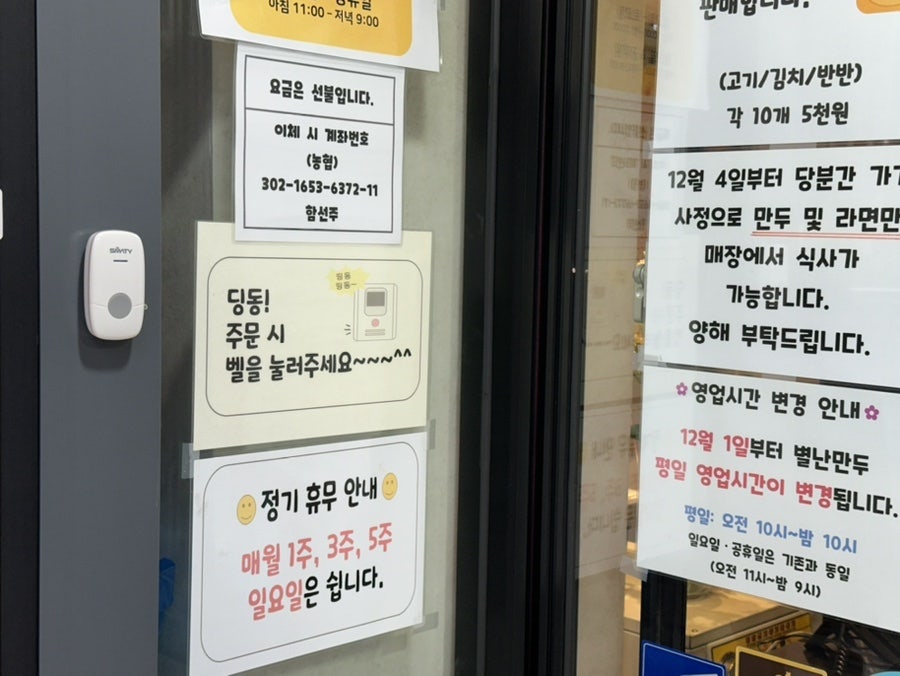 아침 11:00 - 저녁 9:00
요금은 선불입니다.
이체 시 계좌번호
(농협)
302-1653-6372-11
함선주
SAVTY
딩동!
주문 시
벨을 눌러주세요~~~^^
딩동
딩동~
정기 휴무 안내
매월 1주, 3주, 5주
일요일은 쉽니다.
판매합니다.
(고기/김치/반반)
각 10개 5천원
12월 4일부터 당분간
사정으로 만두 및 라면만
매장에서 식사가
가능합니다.
양해 부탁드립니다.
영업시간 변경 안내
12월 1일부터 별난만두
평일 영업시간이 변경됩니다.
평일: 오전 10시~밤 10시
일요일·공휴일은 기존과 동일
(오전 11시~밤 9시)